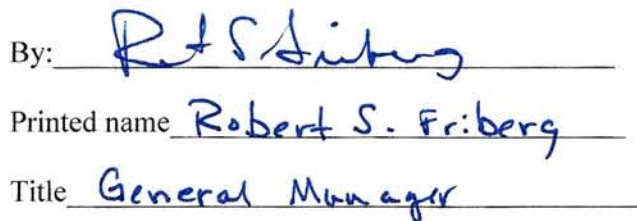 By: Robert S Friberg
Printed name Robert S. Friberg
Title General Manager